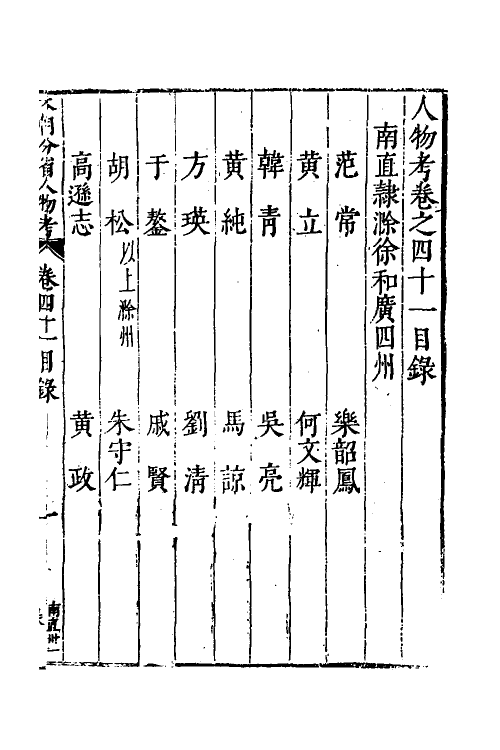 人物考卷之四十一目錄
南直隸滁徐和廣四州
范常　樂韶鳳
黃立　何文輝
韓青　吳亮
黃純　馬諒
方瑛　劉清
于鏊　戚賢
胡松以上滁州　朱守仁
高遜志　黃政
本朝分省人物考　卷四十一目錄　一　南直卅一